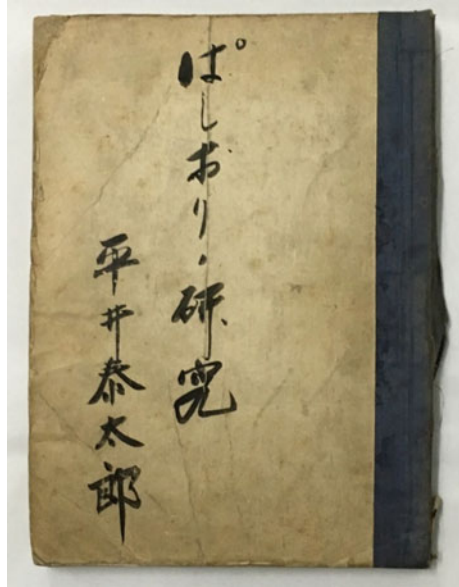 ぱしおり研究
平井泰太郎